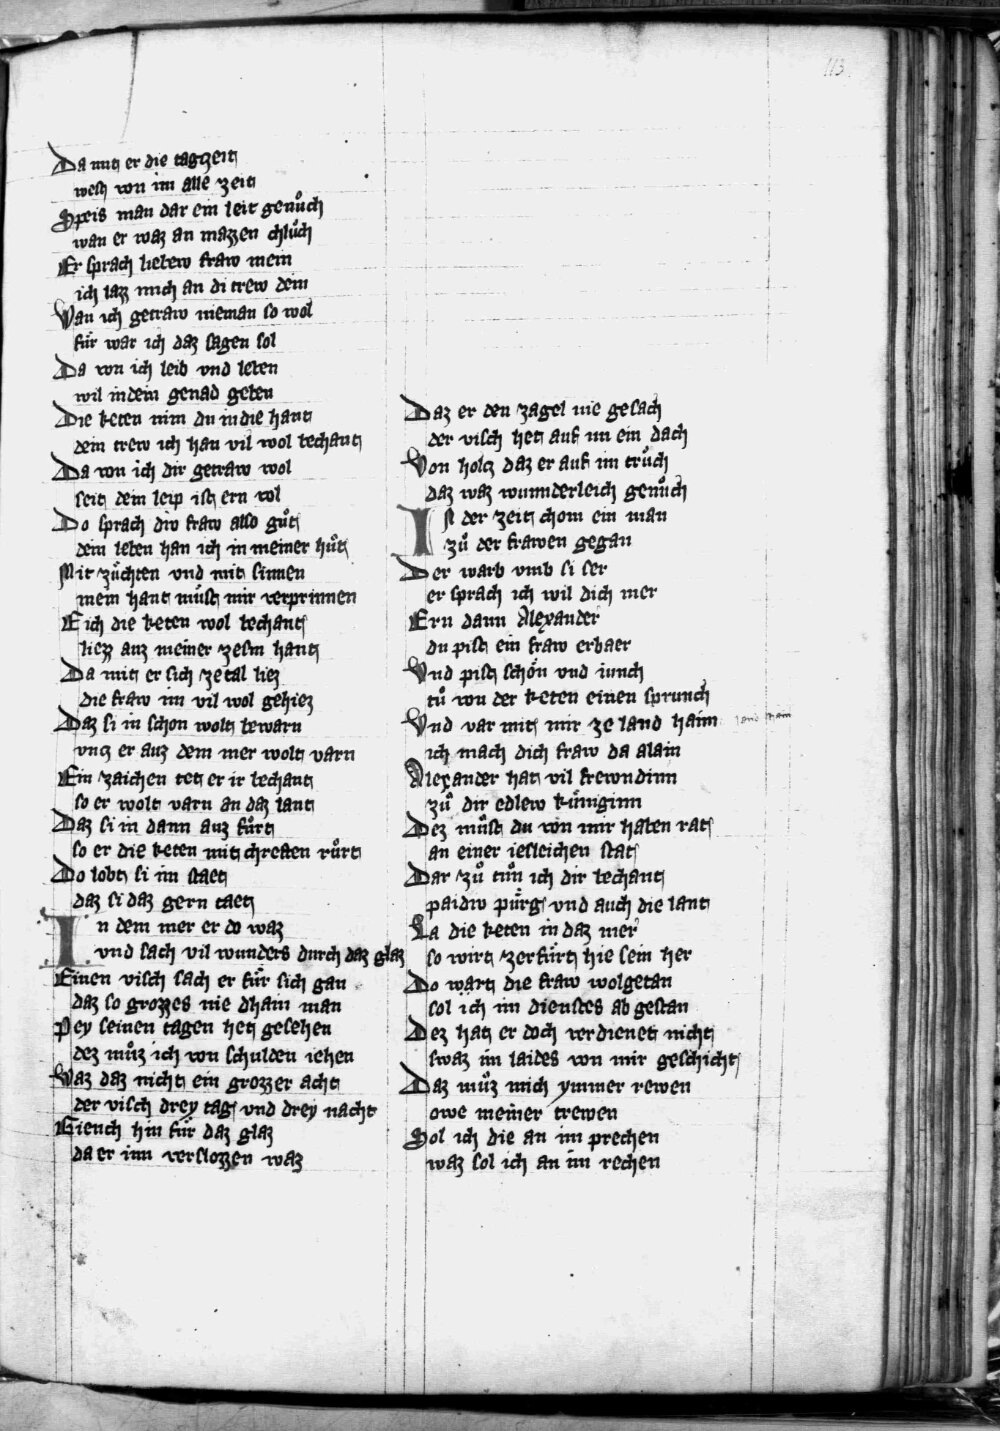 113
Da mit er die tagzeit
west von im alle zeit
Speis man dar ein leit genůch
wan er waz an mazzen chlůch
Er sprach liebew fraw mein
ich lazz mich an di trew dein
Wan ich getraw nieman so wol
für war ich daz sagen sol
Da von ich leib vnd leben
wil in dein genad geben
Die keten nim du in die hant
dein trew ich han vil wol bechant
Da von ich dir getraw wol
seit dein leip ist ern vol
Do sprach diw fraw also gůt
dein leben han ich in meiner hůt
Mit züchten vnd mit sinnen
mein hant můst mir verprinnen
E ich die keten wol bechant
liezz auz meiner zesm hant
Da mit er sich ze tal liez
die fraw im vil wol gehiez
Daz si in schon wolt bewarn
vntz er auz dem mer wolt varn
Ein zaichen tet er ir bechant
so er wolt varn an daz lant
Daz si in dann auz fůrt
so er die keten mit chreften růrt
Do lobt si im staet
daz si daz gern taet
In dem mer er do waz
vnd sach vil wunders durch daz glaz
Einen visch sach er für sich gan
daz so grozzes nie dhain man
Pey seinen tagen het gesehen
dez můz ich von schulden iehen
Waz daz nicht ein grozzer acht
der visch drey tag vnd drey nacht
Giench hin für daz glaz
da er inn verslozzen waz
Daz er den zagel nie gesach
der visch het auf im ein dach
Von holtz daz er auf im trůch
daz waz wunnderleich genůch
In der zeit chom ein man
zů der frawen gegan
Der warb vmb si ser
er sprach ich wil dich mer
Ern dann Alexander
du pist ein fraw erbaer
Vnd pist schön vnd iunch
tů von der keten einen sprunch
Vnd var mit mir ze land haim land haim
ich mach dich fraw da alain
Alexander hat vil frewndinn
zů dir edlew küniginn
Dez můst du von mir haben rat
an einer iesleichen stat
Dar zů tůn ich dir bechant
paidiw pürg vnd auch die lant
La die keten in daz mer
so wirt zerfürt hie sein her
Do wart die fraw wolgetan
sol ich im dienstes ab gestan
Dez hat er doch verdienet nicht
swaz im laides von mir geschicht
Daz můz mich ymmer rewen
owe meiner trewen
Sol ich die an im prechen
waz sol ich an im rechen